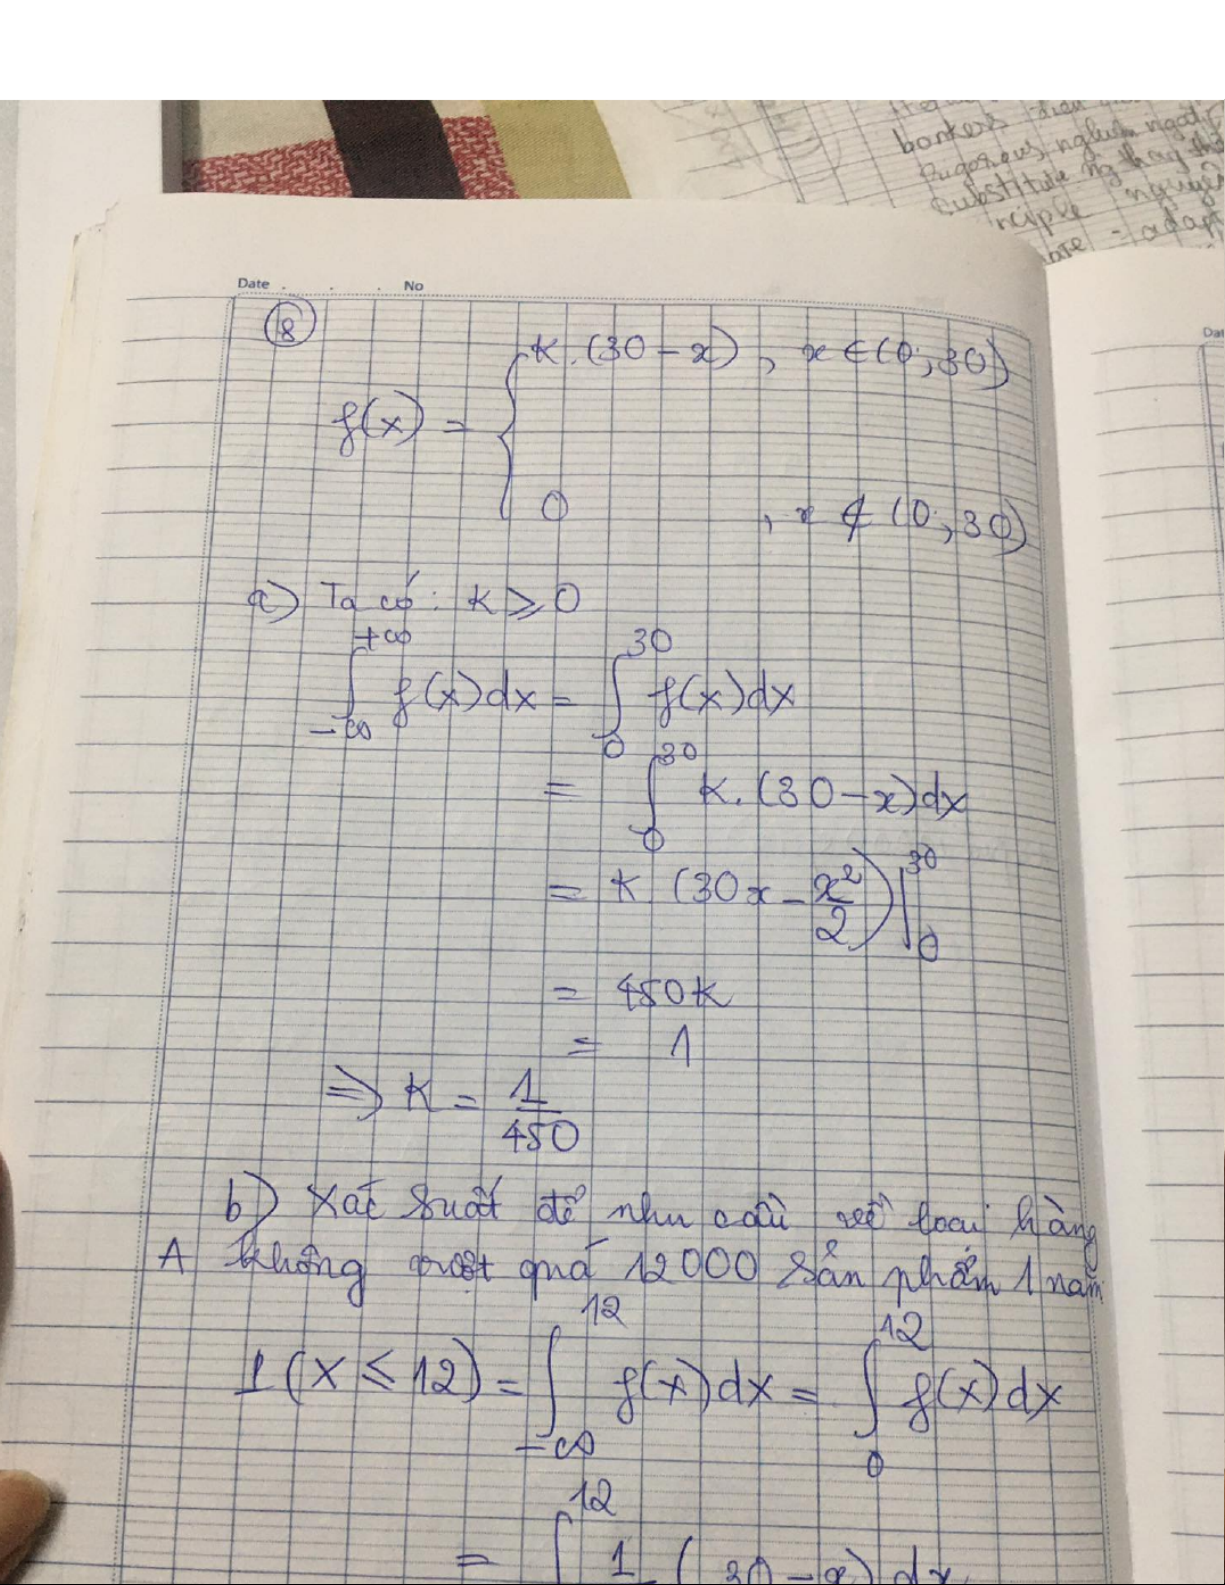 bankers
Rigorous nghiêm ngặt
substitute
nciple nguyên
adapt
Date . . . No
Dat
8
f(x) = { k.(30-x) , x ∈ (0;30)
0 , x ∉ (0;30)
a) Ta có: k ⩾ 0
∫_{-∞}^{+∞} f(x)dx = ∫_0^{30} f(x)dx
= ∫_0^{30} k.(30-x)dx
= k (30x - x²/2) |_0^{30}
= 450k
= 1
⇒ k = 1/450
b) Xác suất để nhu cầu về loại hàng
A không vượt quá 12000 sản phẩm 1 năm
P(X ≤ 12) = ∫_{-∞}^{12} f(x)dx = ∫_0^{12} f(x)dx
= ∫^{12} 1 (30-x) dx